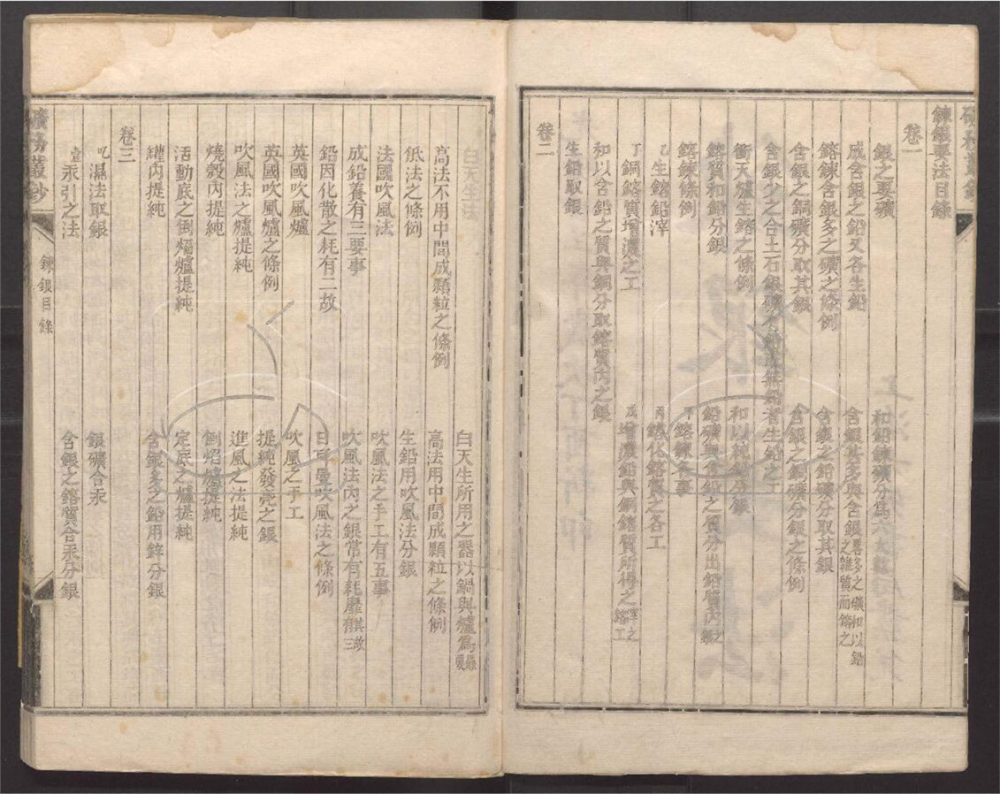 鍊銀要法目錄
卷一
銀之要礦
和鉛鍊礦分為六大類
成含銀之鉛又名生鉛
鎔鍊含銀多之礦之條例
含銀之鉛礦分取其銀
含銀之銅礦分取其銀
含銀之銅礦分銀之條例
衝天爐生鎔之條例
鎔質和鉛分銀
鎔鍊條例
丁鎔鍊各事
乙生鎔鉛滓
丙鎔化鎔質之各工
丁銅鎔質增濃之工
戊增濃鉛與銅鎔質所得之滓之鎔工
和以含鉛之質與銅分取鎔質內之銀
卷二
生鉛取銀
白天生法
白天生所用之器以鍋與爐為最要
高法不用中間成顆粒之條例
高法用中間成顆粒之條例
低法之條例
生鉛用吹風法分銀
法國吹風法
吹風法之手工有五事
成鉛養有三要事
吹風法內之銀常有耗靡有其三故
鉛因化散之耗有二故
日耳曼吹風法之條例
英國吹風爐
吹風之手工
英國吹風爐之條例
提純發亮之銀
吹風法之爐提純
進風之法提純
燒殼內提純
倒焰爐提純
活動底之倒焰爐提純
定底之爐提純
罐內提純
含銀多之鉛用鋅分銀
卷三
吃濕法取銀
銀礦合汞
壹汞引之法
含銀之鎔質合汞分銀
礦務叢鈔
鍊銀目錄